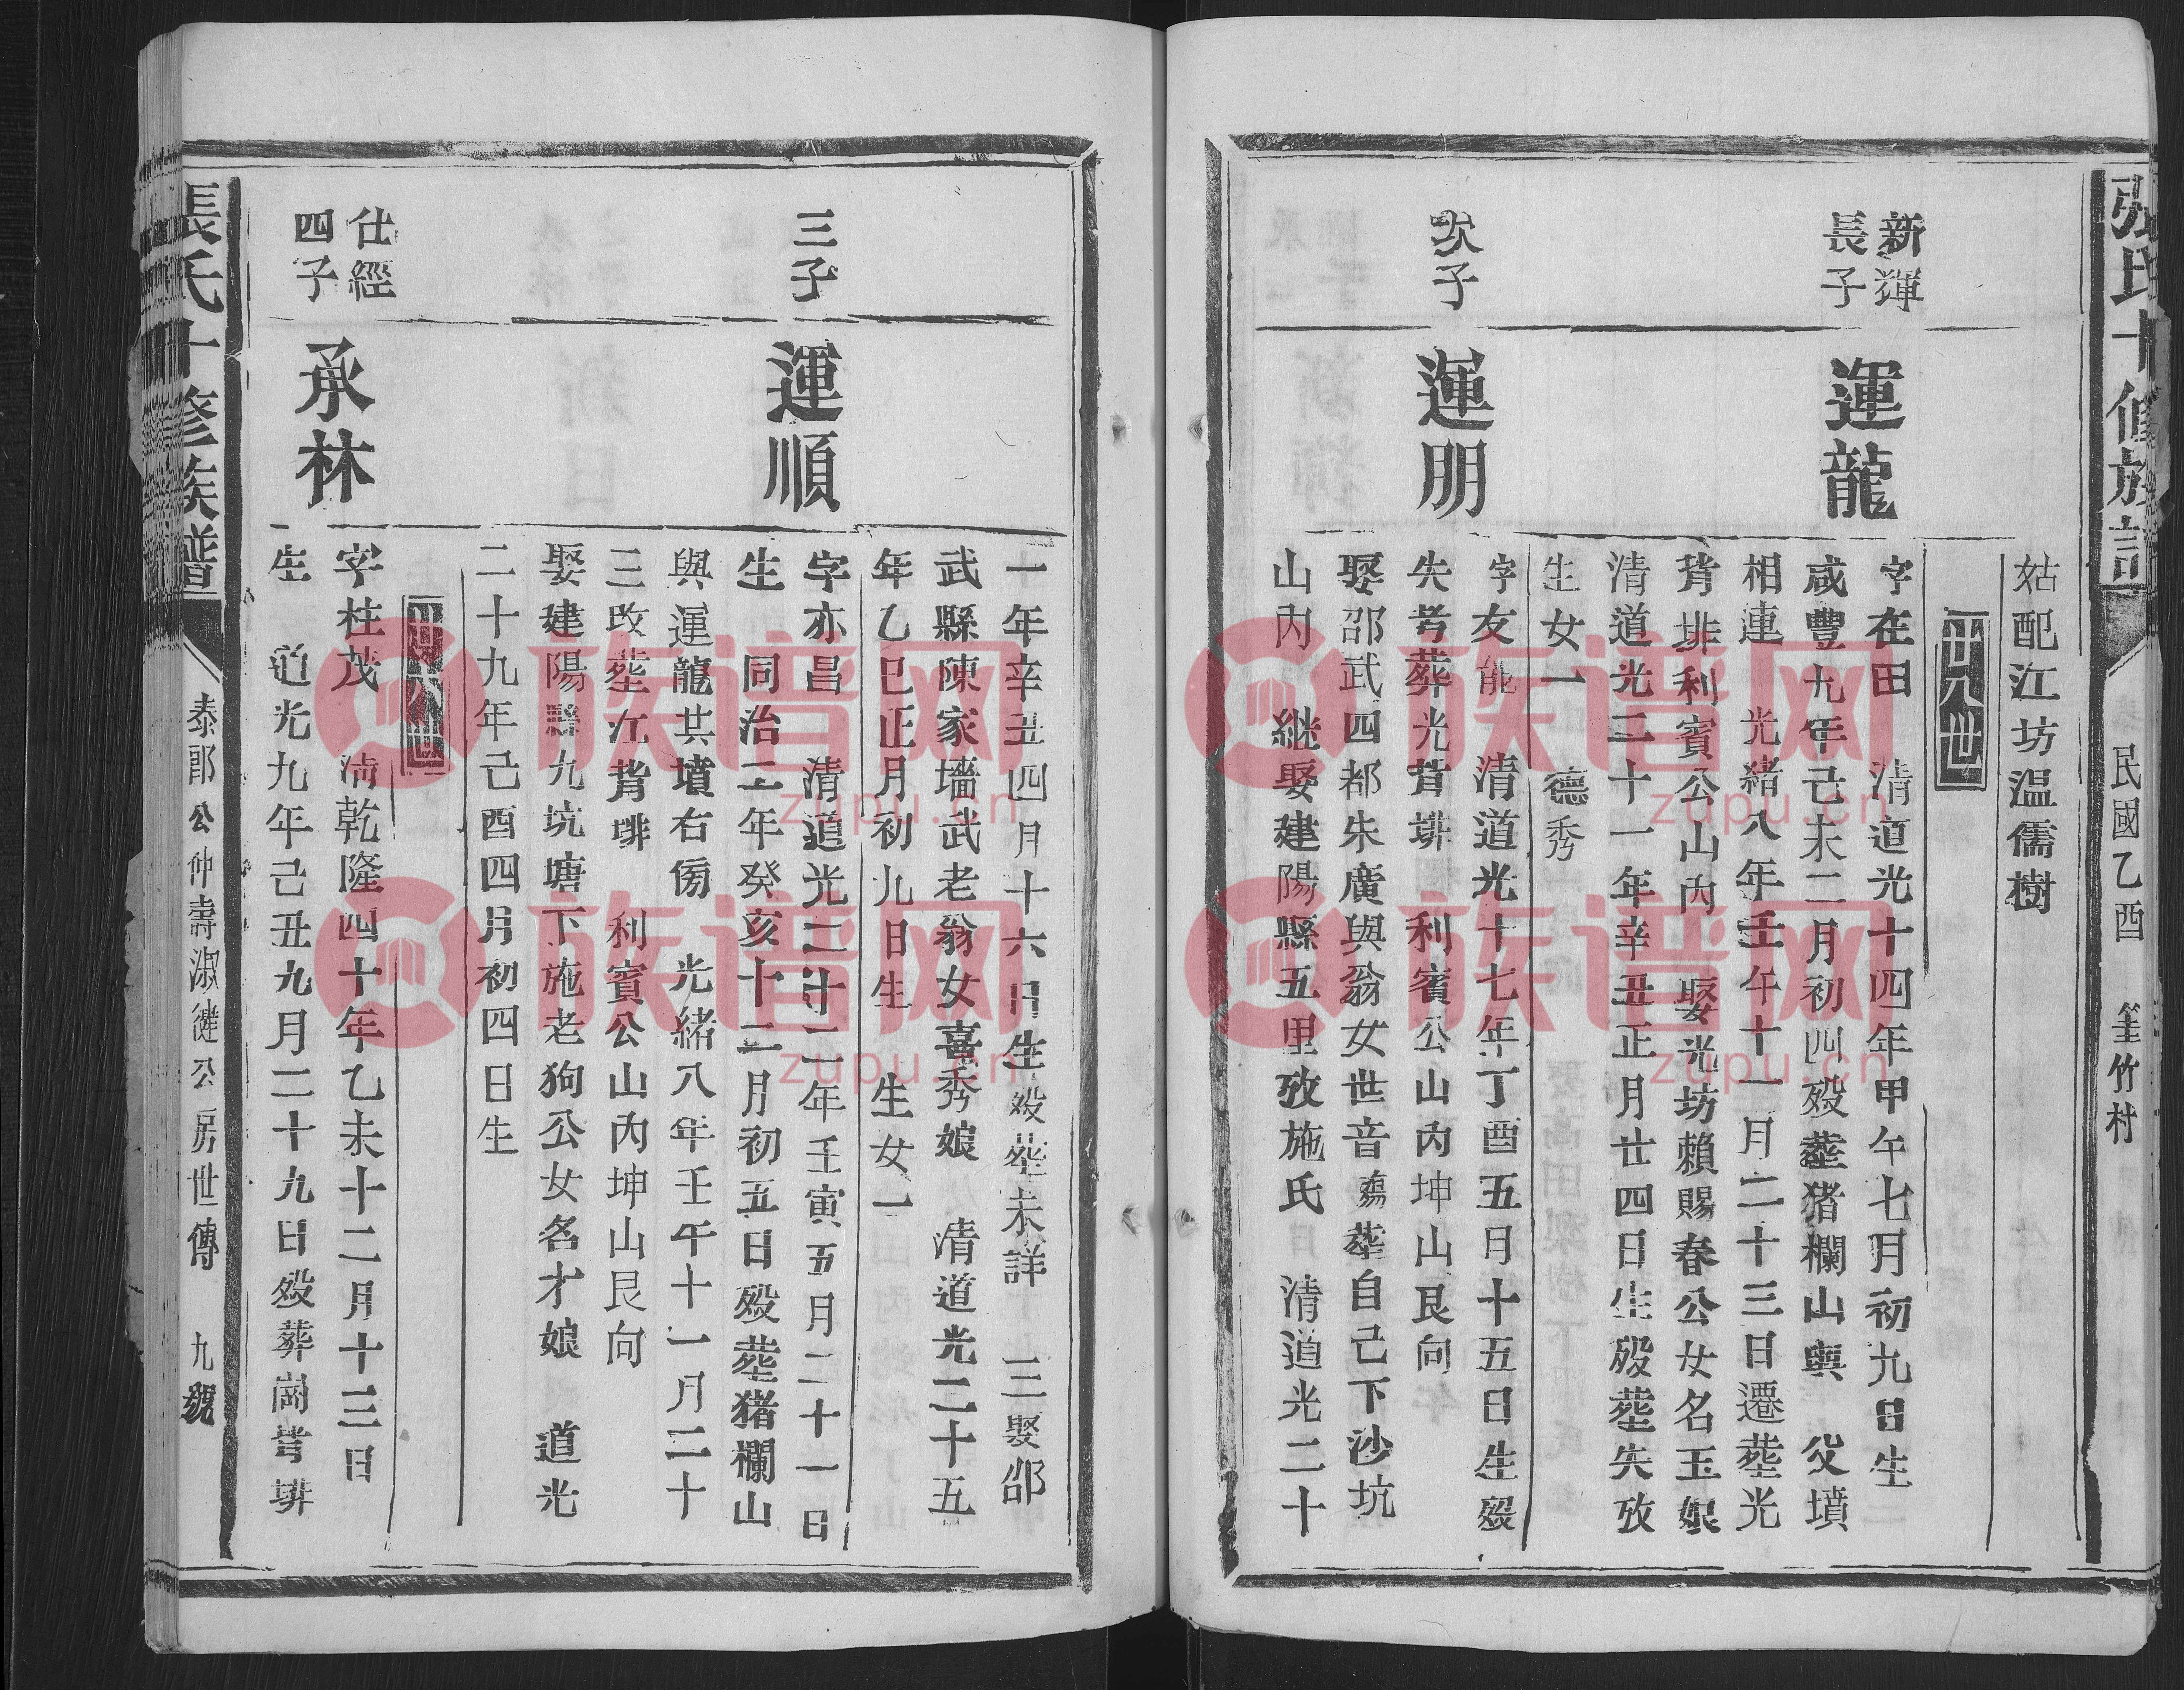 張氏十修族譜
民國乙酉
筀竹村
姑配江坊温儒樹
廿八世
新輝
長子
運龍
字在田　清道光十四年甲午七月初九日生
咸豐九年己未二月初四殁塟猪欄山與　父墳
相連　光緒八年壬午十一月二十三日遷塟光
背垪利賓公山內　娶光坊賴賜春公女名玉娘
清道光二十一年辛丑正月廿四日生殁塟失攷
生女一　德秀
次子
運朋
字友能　清道光十七年丁酉五月十五日生殁
失考葬光背垪　利賓公山內坤山艮向
娶邵武四都朱廣與翁女世音殤塟自己下沙坑
山內　継娶建陽縣五里攷施氏　清道光二十
一年辛丑四月十六日生殁塟未詳　三娶邵
武縣陳家墻武老翁女喜秀娘　清道光二十五
年乙巳正月初九日生　生女一
三子
運順
字亦昌　清道光二十二年壬寅五月二十一日
生　同治二年癸亥十二月初五日殁塟猪欄山
與運龍共墳右傍　光緒八年壬午十一月二十
三改塟江背垪　利賓公山內坤山艮向
娶建陽縣九坑塘下施老狗公女名才娘　道光
二十九年己酉四月初四日生
仕經
四子
承林
字柱茂　清乾隆四十年乙未十二月十三日
生　道光九年己丑九月二十九日殁葬崗背垪
張氏十修族譜
泰郎公仲壽淑漣公房世傳
九號
族谱网
zupu.cn
族谱网
zupu.cn
族谱网
zupu.cn
族谱网
zupu.cn